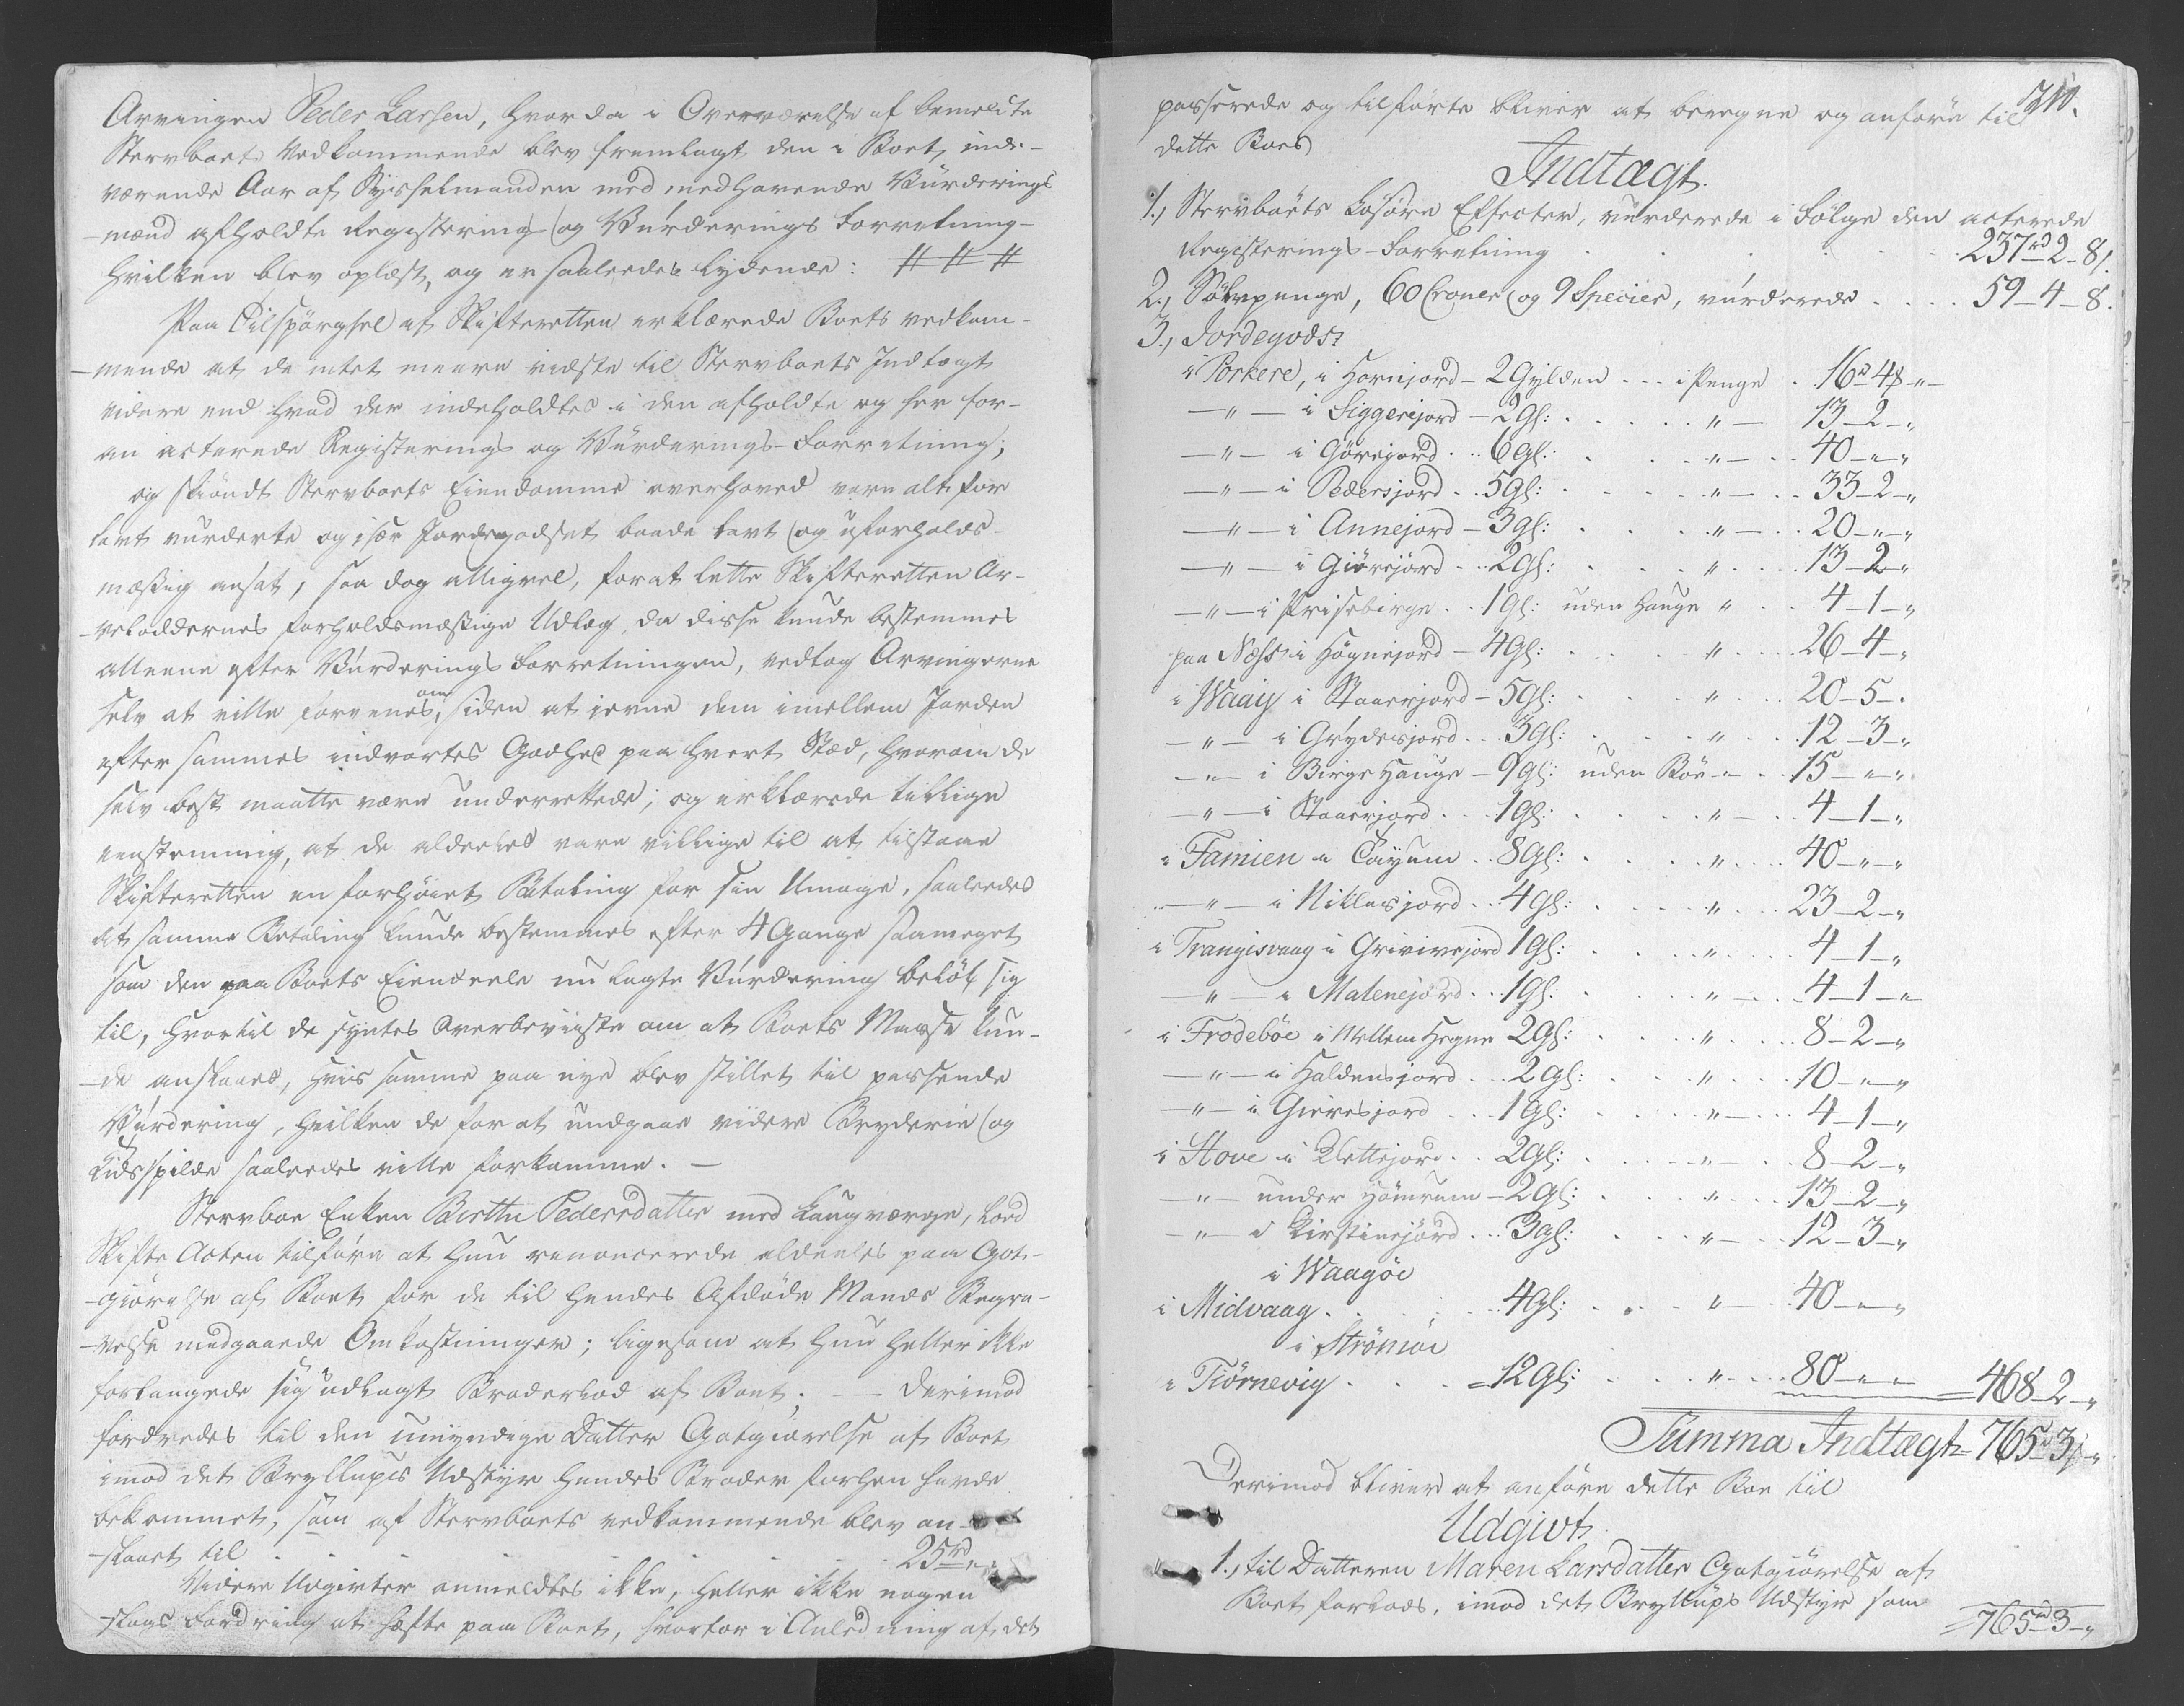 Arvingen Peder Larsen, hvor da i Overværelse af bemeldte
Stervboets Vedkommende blev fremlagt den i Boet, inde-
værende Aar af Sysselmanden med medhavende Vurderings
-mænd afholdte Registering og Vurderings Forretning
hvilken blev oplæst, og er saaledes lydende: # # #
Paa Tilspørgsel af Skifteretten erklærede Boets vedkom-
-mende at de intet meere vidste til Stervboets Indtægt
videre end hvad der indeholdtes i den afholdte og her for-
an acterede Registerings og Vurderings-Forretning;
og skiøndt Stervboets Eiendomme overhoved vare alt for
lavt vurderte og især Jordegodset baade lavt og uforholds-
mæssig ansat, saa dog alligevel, for at lette Skifteretten Ar-
-velodderneles forholdsmæssige Udlæg, da disse kunde bestemmes
alleene efter Vurderings Forretningen, vedtog Arvingerne
selv at ville forenes om, siden at jevne dem imellem Jorden
efter sammes indvortes Godhed paa hvert Stæd, hvorom de
selv best maatte være underrettede; og erklærede tillige
eenstemmig, at de aldeeles vare villige til at tilstaae
Skifteretten en forhøiet Betaling for sin Umage, saaledes
at samme Betaling kunde bestemmes efter 4 Gange saameget
som den paa Boets Eiendeele nu lagte Vurdering beløb sig
til, hvortil de syntes overbeviiste om at Boets Masse kun-
-de anslaaes, hvis samme paa nye blev stillet til passende
Vurdering, hvilken de for at undgaae videre Bryderie og
Tidsspilde saaledes ville forekomme. —
Stervboe Enken Birthe Pedersdatter med Laugværge, lod
Skifte Acten tilføre at hun renoncerede aldeeles paa Got-
-giørelse af Boet for de til hendes Afdøde Mands Begra-
-velse medgaaede Omkostninger; ligesom at hun heller ikke
forlangede sig udlagt Broderlod af Boet. — Derimod
fordredes til den umyndige Datter Gotgiørelse af Boet
imod det Bryllups Udstyr hendes Broder forhen havde
bekommet, som af Stervboets vedkommende blev an-
-slaaet til . . . 25 rd „ „
Videre Udgivter anmeldtes ikke, heller ikke nogen
-slags Fordring at hæfte paa Boet, hvorfor i Anledning af det
210.
passerede og tilførte bliver at beregne og anføre til
dette Boes
Indtægt.
1., Stervboets Løsøre Effecter, vurderede i Følge den acterede
Registerings-Forretning . . . 237 rd 2 - 8 s.
2., Sølvpenge, 60 Croner og 9 Species, vurderede . . . 59 - 4 - 8.
3., Jordegods:
i Porkere, i Hornjord - 2 Gylden . . i Penge . 16 rd 4 - „ -
— „ — i Siggerijord - 2 Gl: . . „ — 13 - 2 - „
— „ — i Gørejord . . 6 Gl: . . „ — 40 - „ - „
— „ — i Pedersjord . . 5 Gl: . . „ — 33 - 2 - „
— „ — i Annejord - 3 gl: . . „ — 20 - „ - „
— „ — i Giørejord . . 2 Gl: . . „ . . 13 - 2 - „
— „ — i Prisebirge . . 1 Gl: uden Hauge „ . . 4 - 1 - „
paa Næss i Høgnejord - 4 Gl: . . „ . . 26 - 4 - „
i Waag i Staaerjord - 5 Gl: . . „ . . 20 - 5 - .
— „ — i Grydesjord . . 3 Gl: . . „ . . 12 - 3 - „
— „ — i Birge Hauge - 9 Gl: uden Bøe - „ . . 15 - „ - „
— „ — i Staaerjord . . 1 Gl: . . „ — . . 4 - 1 - „
i Famien i Tøyum . . 8 Gl: . . „ . . 40 - „ - „
— „ — i Niklasjord . . 4 Gl: . . „ . . 23 - 2 - „
i Trangisvaag i Grivirejord 1 Gl: . . „ . . 4 - 1 - „
— „ — i Malenejord . . 1 Gl: . . „ — . . 4 - 1 - „
i Frodebøe i Mellem Hegne 2 Gl: . . „ . . 8 - 2 - „
— „ — i Haldensjord . . 2 Gl: . . „ . . 10 - „ - „
— „ — i Gieresjord . . 1 Gl: . . „ — . . 4 - 1 - „
i Hove i Klettejord . . 2 Gl: . . „ . . 8 - 2 - „
— „ — under Hømrum - 2 Gl: . . „ . . 13 - 2 - „
— „ — i Kirstinejørd . . 3 gl: . . „ — . . 12 - 3 - „
i Waagøe
i Midvaag . . . 4 Gl: . . „ — . . 40 - „ - „
i Strømøe
i Tiørnevig . . . - 12 Gl: . . „ . . 80 - „ - „ 468 - 2 - „
Summa Indtægt = 765 rd 3 - „
Derimod bliver at anføre dette Boe til
Udgivt.
1., til Datteren Maren Larsdatter Gotgiørelse af
Boet forlods, imod det Bryllups Udstyr som
765 rd 3 - „